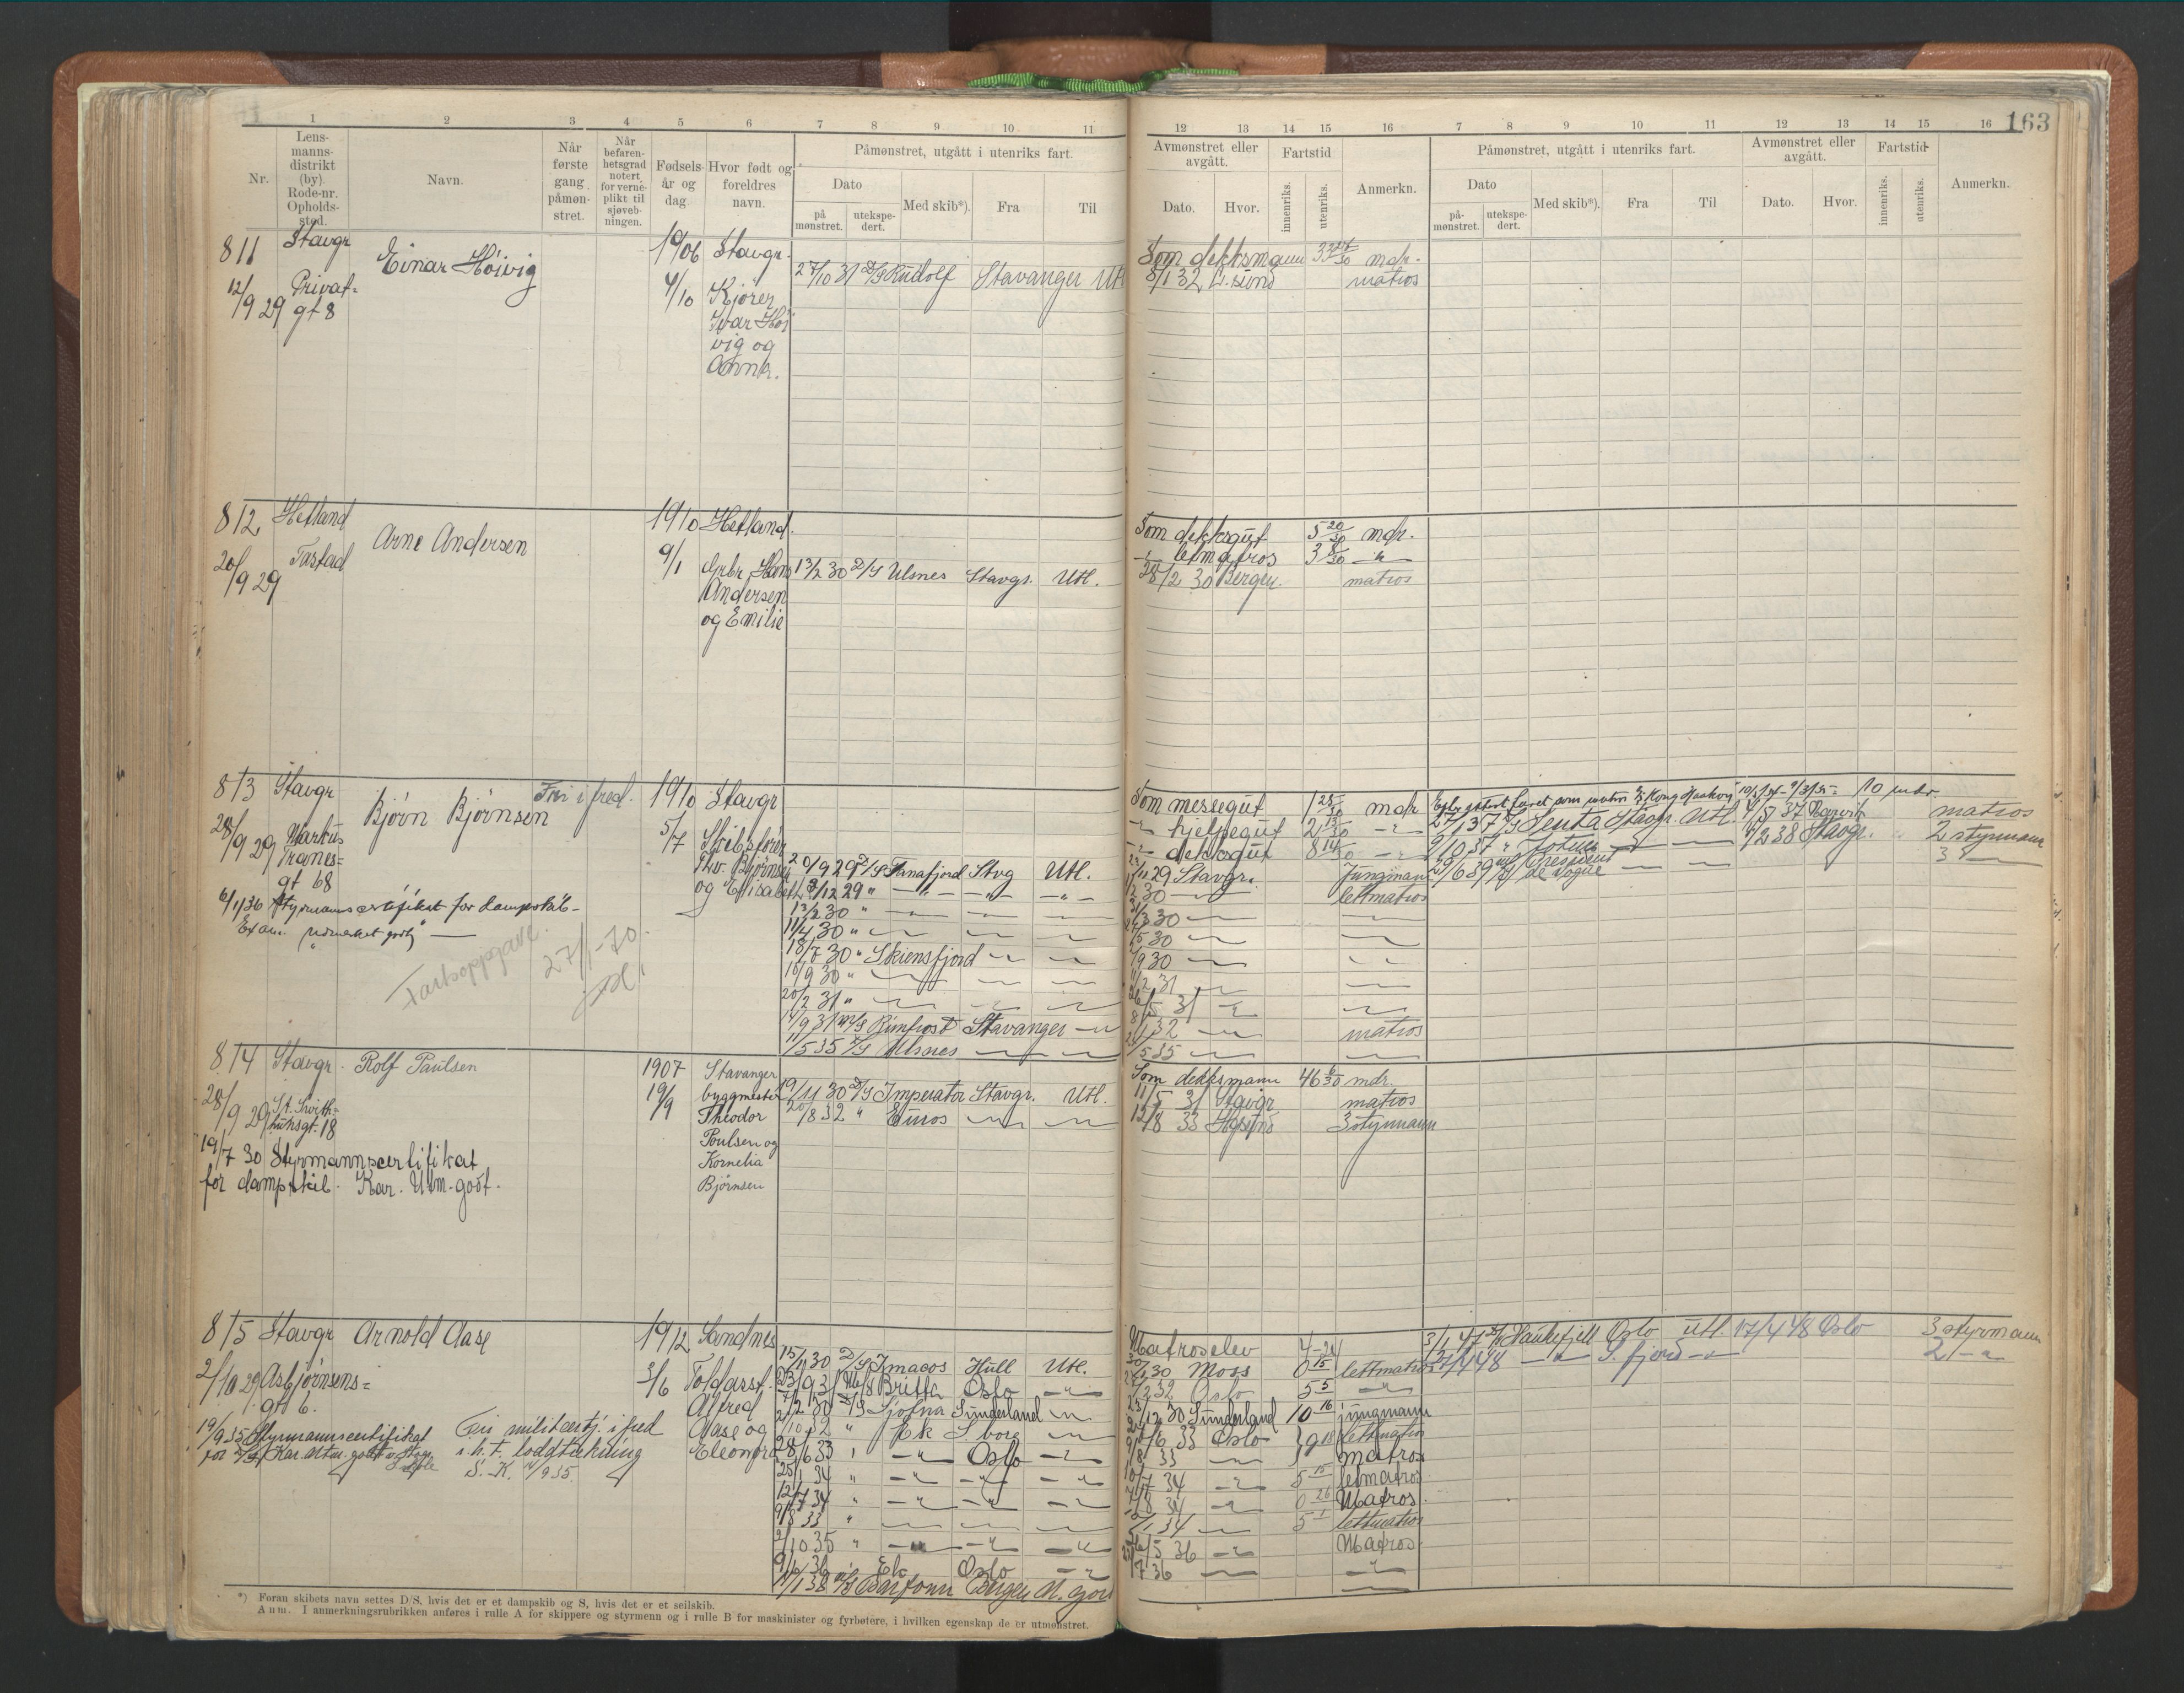 163
1 2 3 4 5 6 7 8 9 10 11
12 13 14 15 16 7 8 9 10 11 12 13 14 15 16
Nr.
Lens-
manns-
distrikt
(by).
Rode-nr.
Opholds-
sted.
Navn.
Når
første
gang
påmøn-
stret.
Når
befaren-
hetsgrad
notert
for verne-
plikt til
sjøveb-
ningen.
Fødsels-
år og
dag.
Hvor født og
foreldres
navn.
Påmønstret, utgått i utenriks fart.
Dato
på
mønstret.
utekspe-
dert.
Med skib*).
Fra
Til
Avmønstret eller
avgått.
Dato.
Hvor.
Fartstid
innenriks.
utenriks.
Anmerkn.
Påmønstret, utgått i utenriks fart.
Dato
på-
mønstret.
utekspe-
dert.
Med skib*).
Fra
Til
Avmønstret eller
avgått.
Dato.
Hvor.
Fartstid
innenriks.
utenriks.
Anmerkn.
811 Stavgr Einar Höivig 1906 Stavgr.
12/9 29 Privat-
gt 8
4/10 Kjører
Ivar Höi
vig og
Anna.
27/10 31 D/S Rudolf Stavanger Utl
Som dekksmann 33 mdr.
8/1 32 matros
812 Hetland Arne Andersen 1910 Hetland.
20/9 29 Tastad
9/1 Grbr. Hans
Andersen
og Emilie
13/2 30 D/S Ulsnes Stavgr. Utl.
Som dekksgut 5 20/30 mdr.
" letmatros 3
28/2 30 Bergen matros
813 Stavgr Bjørn Bjørnsen Fri i fred. 1910 Stavgr
28/9 29 Markus
Tranes-
gt 68
5/7 Skibsfører
Thv. Bjørnsen
og Elisabeth
6/1 36 Styrmannscertifikat for dampskib
Exam. Udmerket godt
Fartsoppgave.
27/1-70.
20/9 29 D/S Tanafjord Stvg Utl.
3/12 29 "
13/2 30 "
11/4 30 "
18/7 30 " Skiensfjord
18/9 30 "
20/2 31 "
1/9 31 M/S Rimfrost Stavanger
1/5 35 D/S Ulsnes
Som messegut 1 25/30 mdr
hjelpegut 2 13/30
dekksgut 8 14/30
29 Stavgr. Jungmann
30 lettmatros
3 30
5 30
9 30
2 31
5 31
1 32 matros
5 35
som matros Kong Haakon 10 mdr.
27/1 37 D/S Jenta Stavgr. Utl. 4/5 37 Narvik matros
2/10 37 " 4/2 38 Stavgr. 2 styrmann
19/6 39 President de Vogue 3
814 Stavgr. Rolf Paulsen 1907 Stavanger
28/9 29 St. Svith-
unsgt. 18
19/9 byggmester
Theodor
Poulsen og
Kornelia
Bjørnsen
19/7 30 Styrmannscertifikat
for dampskib. Kar. Utm. godt.
19/11 30 D/S Imperator Stavgr. Utl.
20/8 32 " Euros
Som dekksmann 46 6/30 mdr.
11/5 31 Stavgr matros
12/8 33 3 styrmann
815 Stavgr Arnold Aase 1912 Sandnes
2/10 29 Asbjørnsens-
gt 6.
3/6 Toldasst.
Alfred
Aase og
Eleonora
19/9 35 Styrmannscertifikat
for D/S Kar. Utm. godt
Fri militærtj. i fred
i h. t. loddtrekning
S. K. 4/9 35.
15/11 30 D/S Imacos Hull Utl.
23/9 31 M/S Britta Oslo
7/2 30 D/S Sjofna Sunderland
2/10 32 " Ek S borg
28/6 33 " Oslo
25/1 34 "
12/7 34 "
9/8 33 "
2/10 35 "
9/6 36 Ek Oslo
1/1 38 Bergen
Matroselev 4-24
30 Moss 0 15 lettmatros
2 32 Oslo 5 5
12 30 Sunderland 10 16 jungmann
6 33 Oslo 9 18 lettmatros
8 33 matros
7 34 5 15 letmatros
8 34 0 26 Matros.
1 34 5 1 lettmatros
5 36 Matros.
7 36
3/1 47 Haukefjell Oslo utl. 17/4 48 Oslo 3 styrmann
27/4 48 S. fjord 2
*) Foran skibets navn settes D/S, hvis det er et dampskib og S, hvis det er et seilskib.
Anm. I anmerkningsrubrikken anføres i rulle A for skippere og styrmenn og i rulle B for maskinister og fyrbøtere, i hvilken egenskap de er utmønstret.